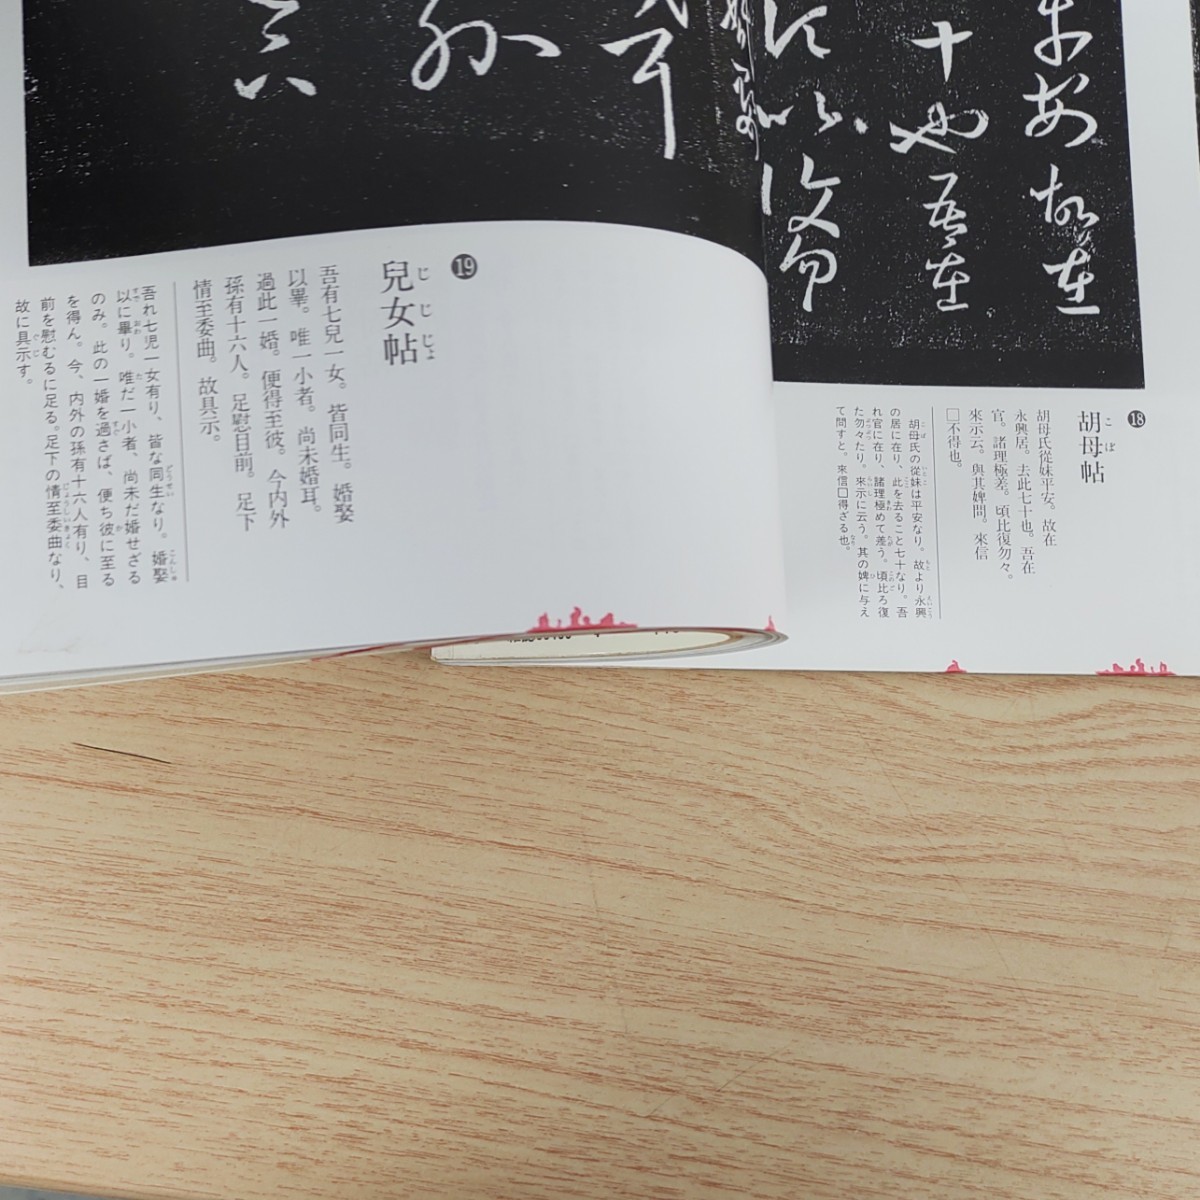 平安故在
十也吾在
⓲
胡母帖
こぼ
胡母氏從妹平安。故在
永興居。去此七十也。吾在
官。諸理極差。頃比復勿々。
來示云。與其婢問。來信
□不得也。
胡母氏の從妹は平安なり。故より永興
の居に在り、此を去ること七十なり。吾
れ官に在り、諸理極めて差う。頃比ろ復
た勿々たり。來示に云う。其の婢に与え
て問すと、來信□得ざる也。
⓳
兒女帖
じじじょ
吾有七兒一女。皆同生。婚娶
以畢。唯一小者。尚未婚耳。
過此一婚。便得至彼。今内外
孫有十六人。足慰目前。足下
情至委曲。故具示。
吾れ七児一女有り、皆な同生なり。婚娶
以に畢り。唯だ一小者、尚未だ婚せざる
のみ。此の一婚を過さば、便ち彼に至る
を得ん。今、内外の孫有十六人有り、目
前を慰むるに足る。足下の情至委曲なり、
故に具示す。